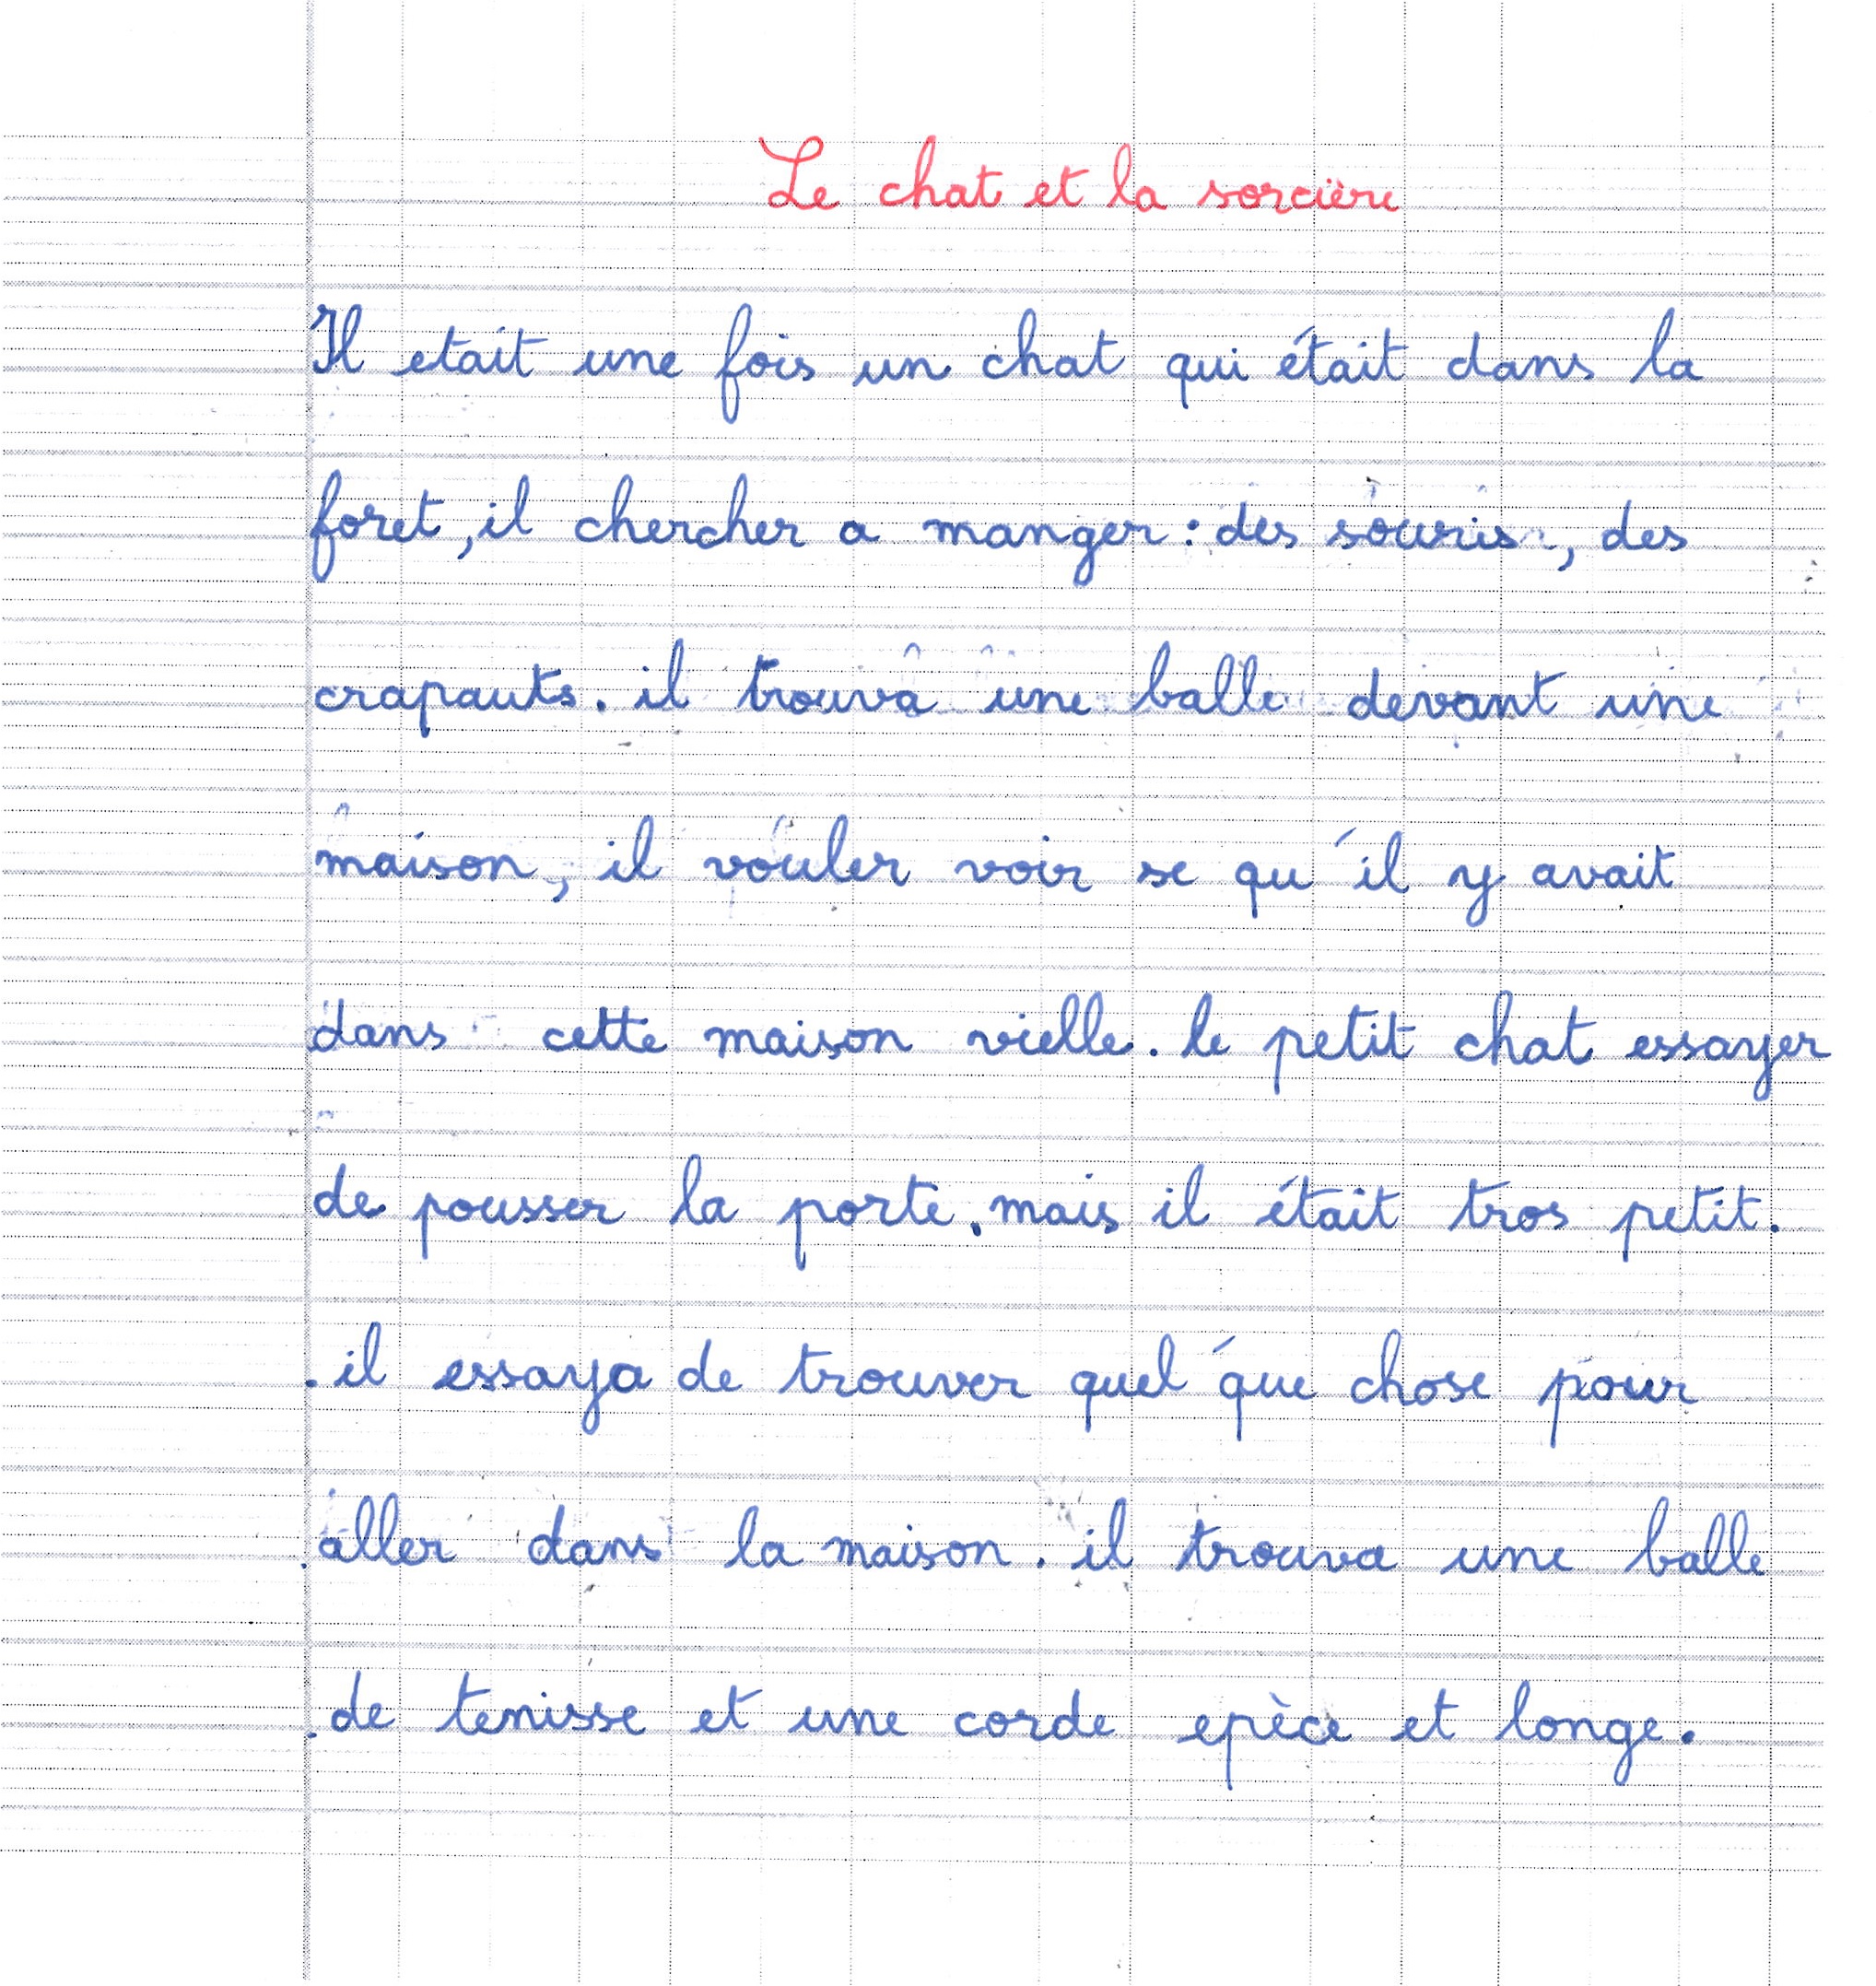 Le chat et la sorcière
Il etait une fois un chat qui était dans la
foret, il chercher a manger : des souris, des
crapauts. il trouva une balle devant une
maison, il vouler voir se qu'il y avait
dans cette maison vielle. le petit chat essayer
de pousser la porte. mais il était tros petit.
. il essaya de trouver quel'que chose pour
aller dans la maison. il trouva une balle
de tenisse et une corde epèce et longe.